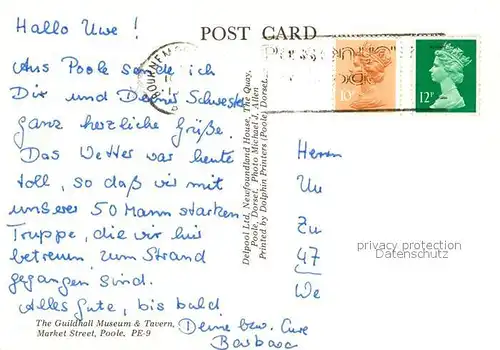 POST CARD
Hallo Uwe!
Aus Poole sende ich
Dir und Deiner Schwester
ganz herzliche Grüße.
Das Wetter war heute
toll, so daß wir mit
unserer 50 Mann starken
Truppe, die wir hier
betreuen zum Strand
gegangen sind.
Alles Gute, bis bald
Deine bzw. Eure
Barbara
The Guildhall Museum & Tavern,
Market Street, Poole. PE-9
Delpool Ltd, Newfoundland House, The Quay,
Poole, Dorset. Photo Michael J. Allen
Printed by Dolphin Printers (Poole) Dorset.
BOURNEM
10P
12P
Herrn
Zu
47
We
privacy protection
Datenschutz